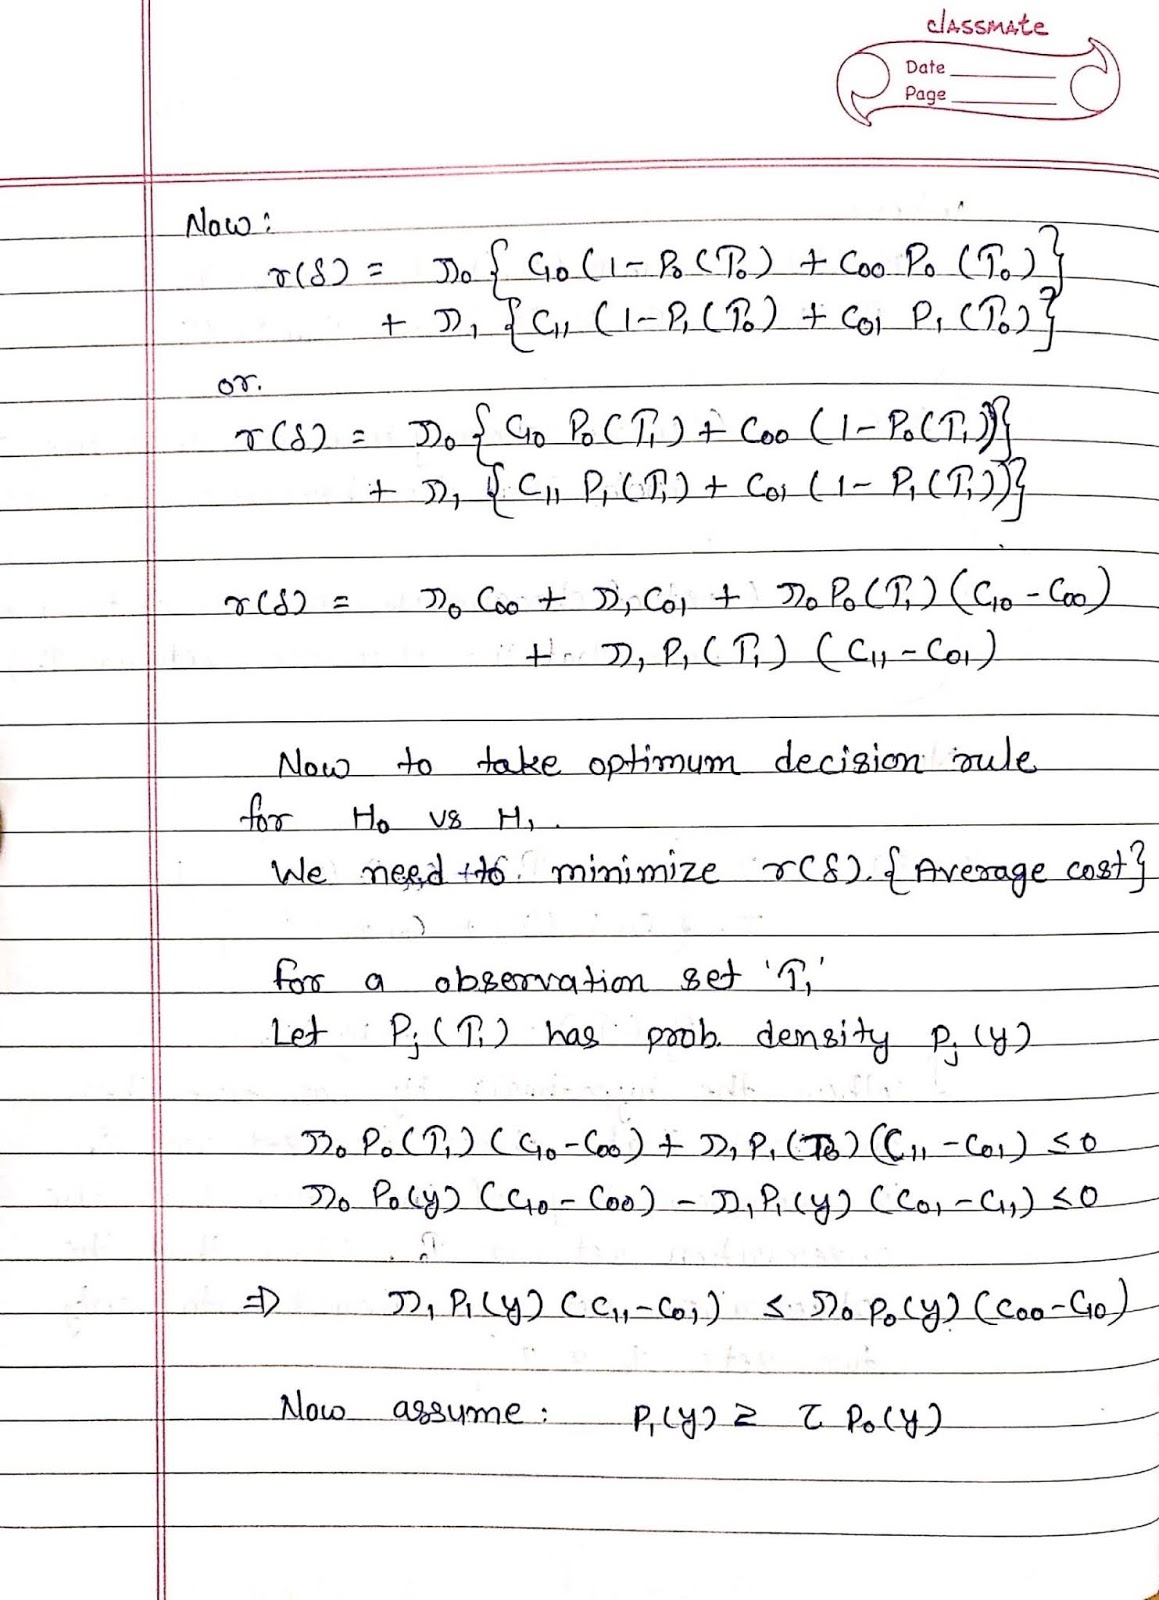 classmate
Date
Page
Now:
r(δ) = π₀ { C₁₀ (1 - P₀ (Γ₀) + C₀₀ P₀ (Γ₀) }
+ π₁ { C₁₁ (1 - P₁ (Γ₀) + C₀₁ P₁ (Γ₀) }
or.
r(δ) = π₀ { C₁₀ P₀ (Γ₁) + C₀₀ (1 - P₀(Γ₁)) }
+ π₁ { C₁₁ P₁ (Γ₁) + C₀₁ (1 - P₁ (Γ₁)) }
r(δ) = π₀ C₀₀ + π₁ C₀₁ + π₀ P₀ (Γ₁) (C₁₀ - C₀₀)
+ π₁ P₁ (Γ₁) (C₁₁ - C₀₁)
Now to take optimum decision rule
for H₀ vs H₁.
We need to minimize r(δ). {Average cost}
for a observation set 'Γ₁'
Let Pⱼ (Γ₁) has prob. density Pⱼ (y)
π₀ P₀ (Γ₁) (C₁₀ - C₀₀) + π₁ P₁ (Γ₀) (C₁₁ - C₀₁) ≤ 0
π₀ P₀(y) (C₁₀ - C₀₀) - π₁ P₁ (y) (C₀₁ - C₁₁) ≤ 0
⇒ π₁ P₁ (y) (C₁₁ - C₀₁) ≤ π₀ P₀ (y) (C₀₀ - C₁₀)
Now assume: P₁ (y) ≥ τ P₀ (y)